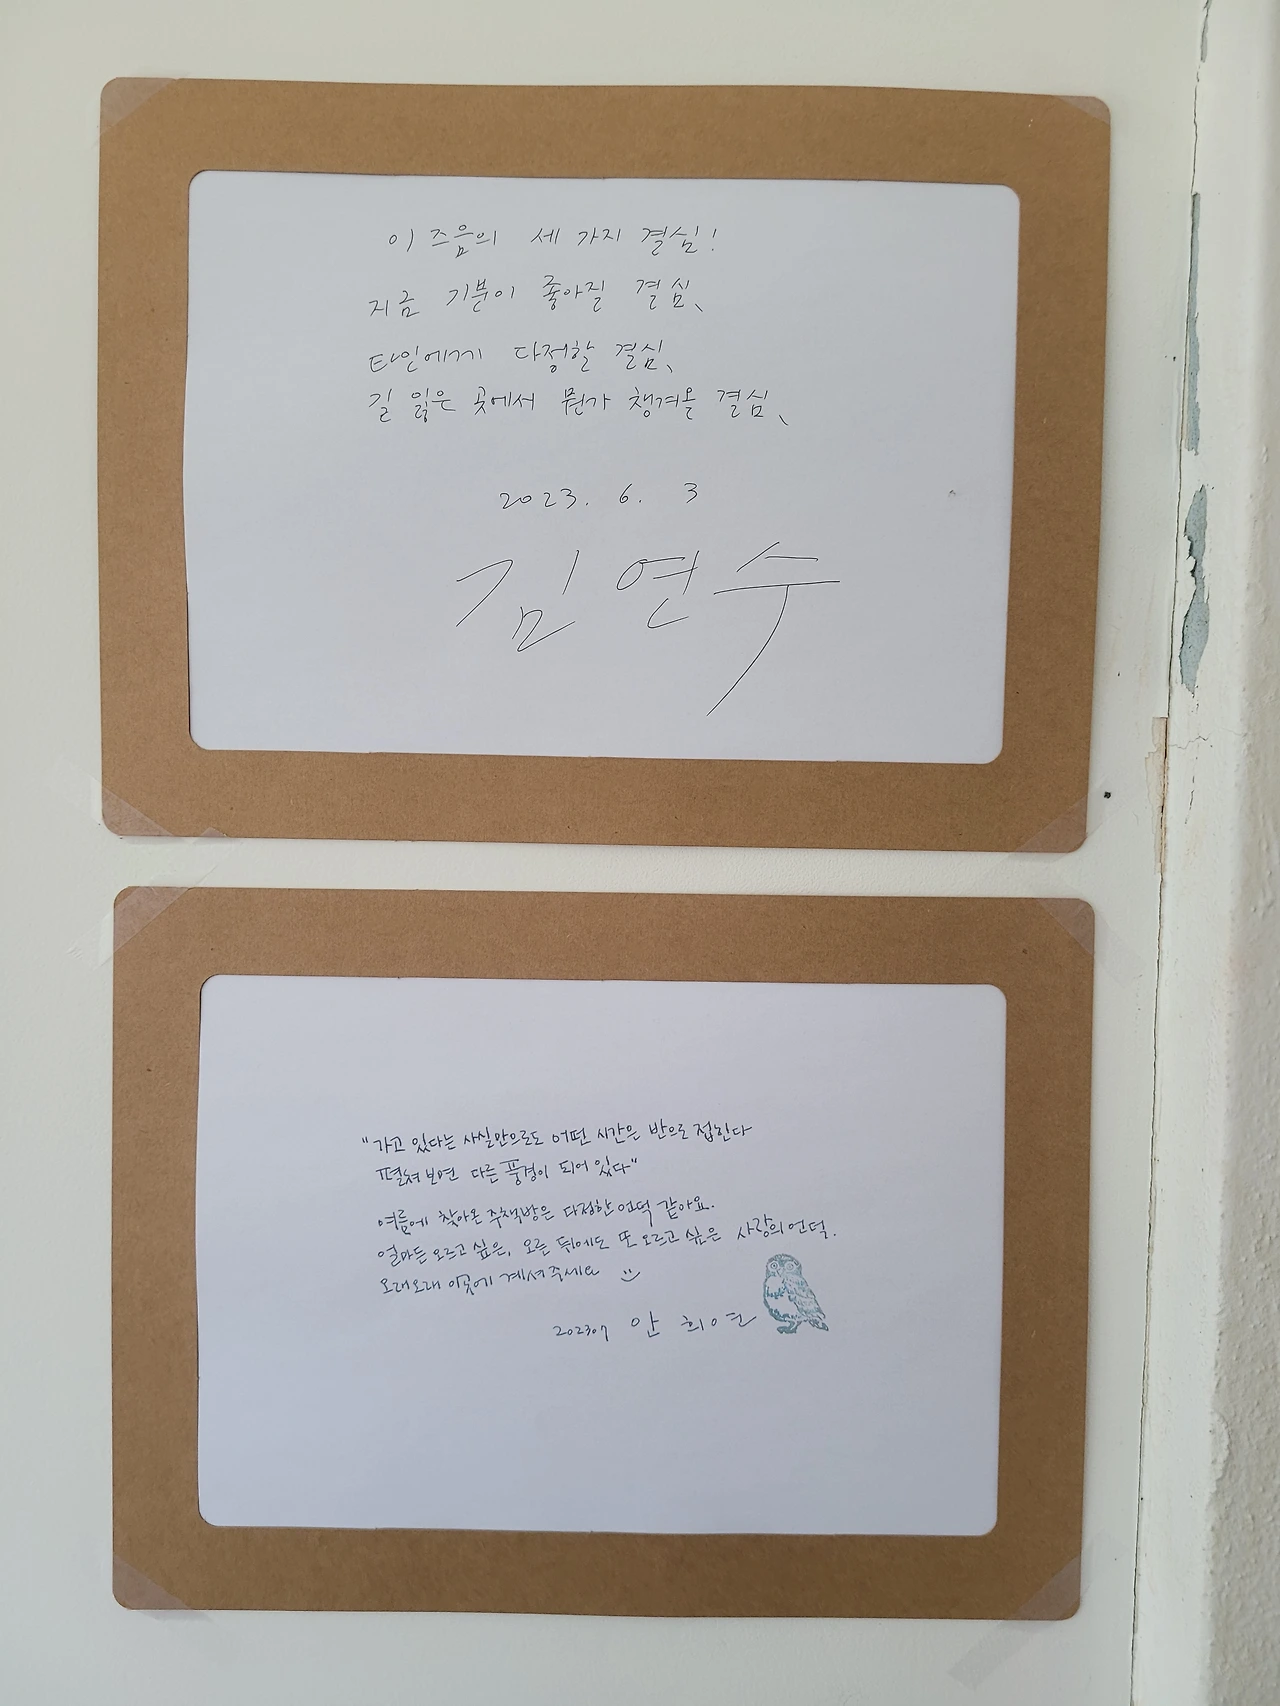 이 즈음의 세 가지 결심!
지금 기분이 좋아질 결심,
타인에게 다정할 결심,
길 잃은 곳에서 뭔가 챙겨올 결심,
2023. 6. 3
김연수
"가고 있다는 사실만으로도 어떤 시간은 반으로 접힌다
펼쳐보면 다른 풍경이 되어 있다"
여름에 찾아온 주책방은 다정한 언덕 같아요.
얼마든 오르고 싶은, 오른 뒤에도 또 오르고 싶은 사랑의 언덕.
오래오래 이곳에 계셔주세요
202307 안희연